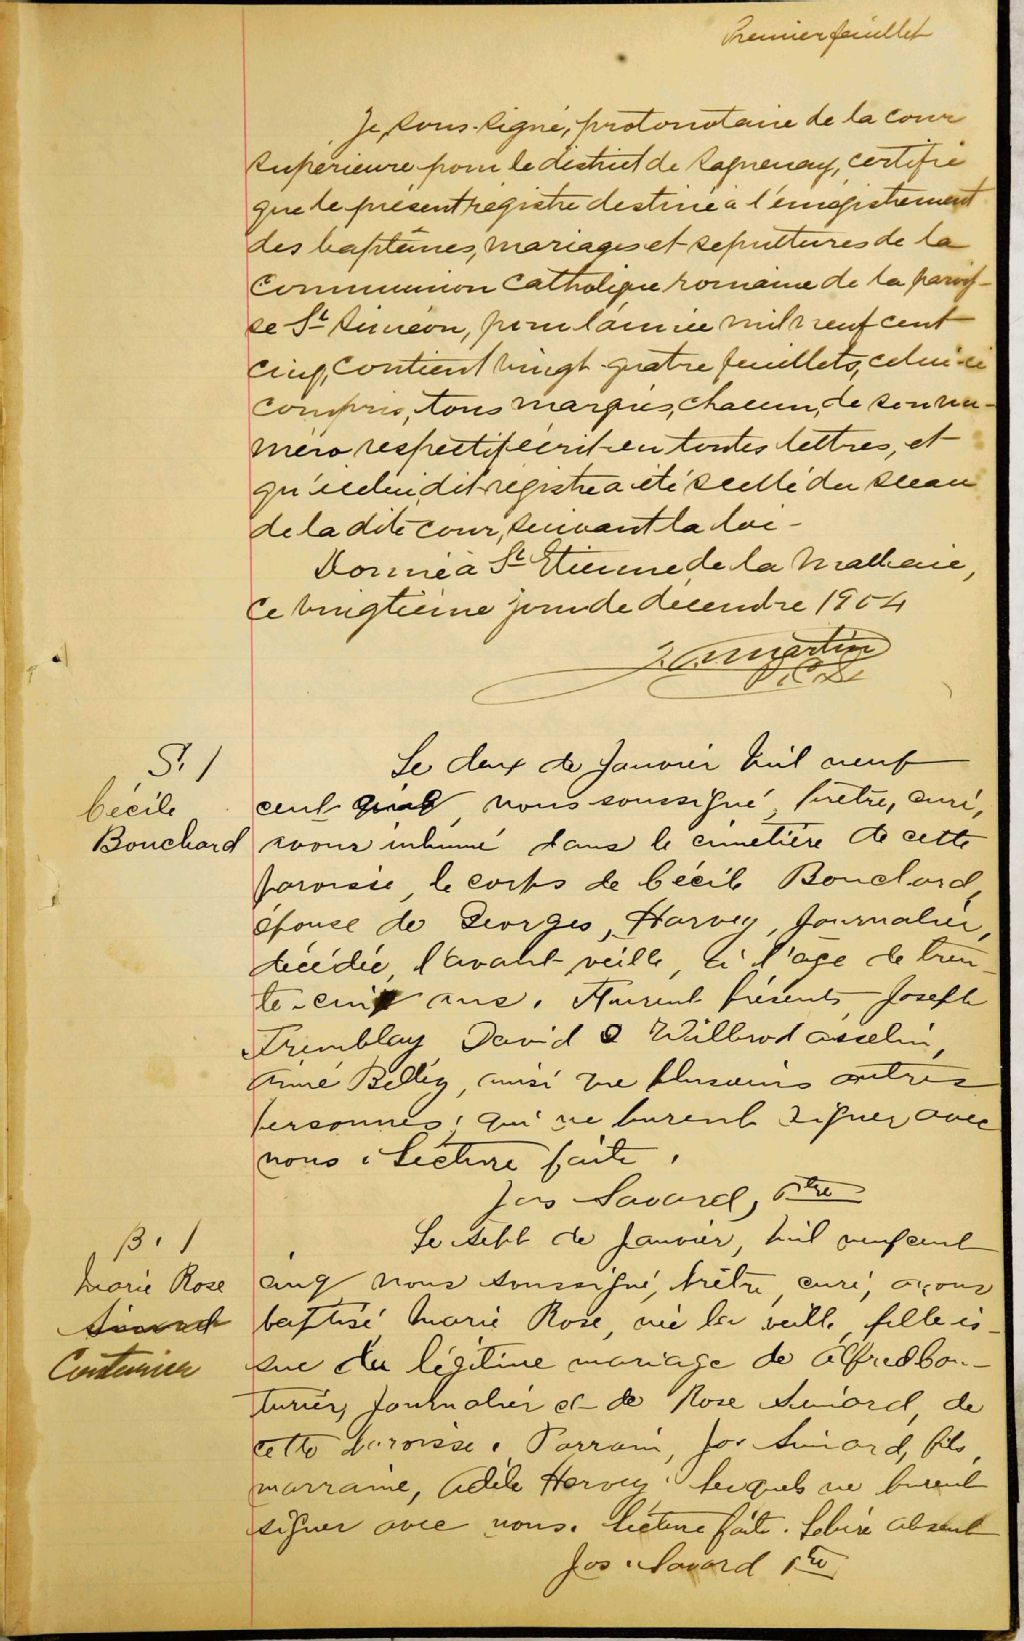 Premier feuillet
Je, sous-signé, protonotaire de la cour
supérieure pour le district de Saguenay, certifie
que le présent régistre destiné à l'enregistrement
des baptêmes, mariages et sépultures de la
Communion Catholique romaine de la parois-
se St Siméon, pour l'année mil neuf cent
cinq, contient vingt-quatre feuillets, celui-ci
compris, tous marqués, chacun, de son nu-
méro respectif écrit en toutes lettres, et
qu'icelui dit régistre a été scellé du sceau
de la dite cour, suivant la loi -
Donné à St Etienne de la Malbaie,
ce vingtième jour de décembre 1904
Martin
P.C.S.
S. 1
Cécile
Bouchard
Le deux de Janvier mil neuf
cent cinq, nous soussigné, prêtre, curé,
avons inhumé dans le cimetière de cette
paroisse, le corps de Cécile Bouchard,
épouse de Georges, Harvey, journalier,
décédée, l'avant-veille, à l'âge de tren-
te-cinq ans. Furent présents Joseph
Tremblay David & Wilbrod Asselin,
Aimé Belley, ainsi que plusieurs autres
personnes, qui ne purent signer avec
nous. Lecture faite.
Jos Savard, ptre
B. 1
Marie Rose
Simard
Couturier
Le sept de Janvier, mil neuf cent
cinq, nous soussigné, prêtre, curé, avons
baptisé Marie Rose, née la veille, fille is-
sue du légitime mariage de Alfred Cou-
turier, journalier et de Rose Simard, de
cette paroisse. Parrain, Jos Simard, fils,
marraine, Adèle Harvey lesquels ne purent
signer avec nous. Lecture faite. Le père absent
Jos. Savard ptre